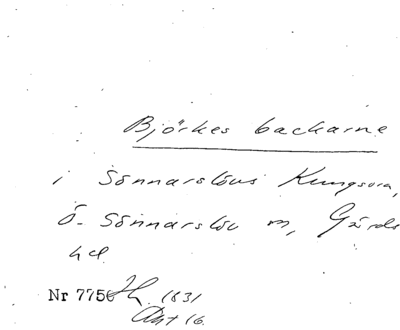 Björkes backarne
i Sönnarslövs Kungsvra,
Ö. Sönnarslöv sn, Gärds
hd.
Nr 7756 1831
Akt 16.